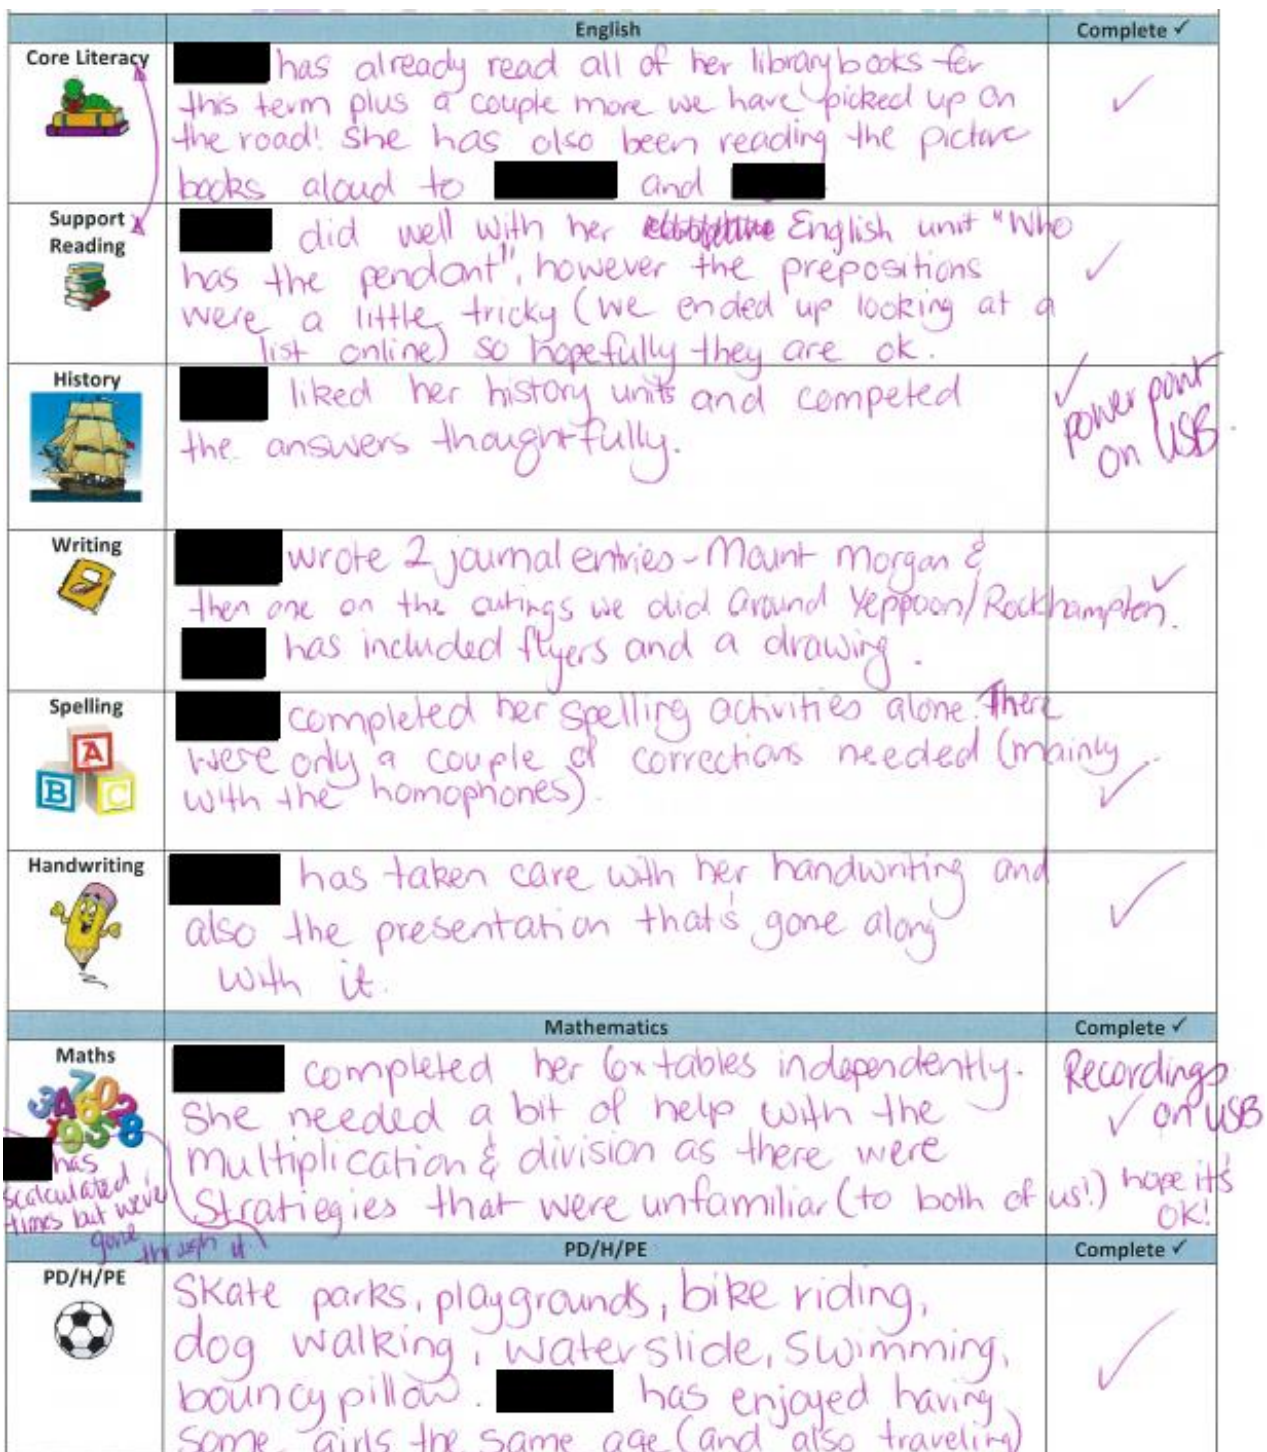 English
Complete ✓
Core Literacy
has already read all of her library books for
this term plus a couple more we have picked up on
the road! She has also been reading the picture
books aloud to and
Support
Reading
did well with her English unit "Who
has the pendant", however the prepositions
were a little tricky (we ended up looking at a
list online) so hopefully they are ok.
✓
History
liked her history units and competed
the answers thoughtfully.
✓
power point
on USB.
Writing
wrote 2 journal entries - Mount Morgan &
then one on the outings we did around Yeppoon/Rockhampton.
has included flyers and a drawing.
✓
Spelling
A
B C
completed her spelling activities alone. There
were only a couple of corrections needed (mainly
with the homophones).
✓
Handwriting
has taken care with her handwriting and
also the presentation that's gone along
with it.
✓
Mathematics
Complete ✓
Maths
has
scalculated
times but we've
gone
through it
completed her 6x tables independently.
She needed a bit of help with the
multiplication & division as there were
Stratiegies that were unfamiliar (to both of us!)
Recordings
✓ on USB
hope it's
OK!
PD/H/PE
Complete ✓
PD/H/PE
Skate parks, playgrounds, bike riding,
dog walking, waterslide, swimming,
bouncy pillow. has enjoyed having
some girls the same age (and also traveling)
✓